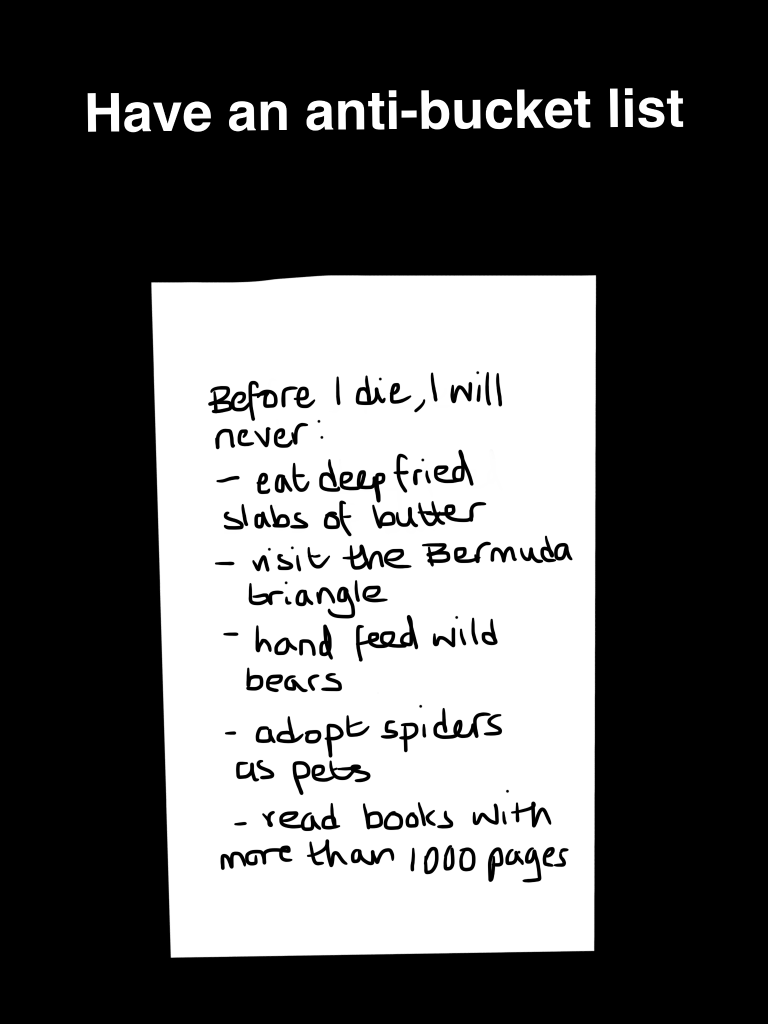 Have an anti-bucket list
Before I die, I will
never:
- eat deep fried
slabs of butter
- visit the Bermuda
triangle
- hand feed wild
bears
- adopt spiders
as pets
- read books with
more than 1000 pages